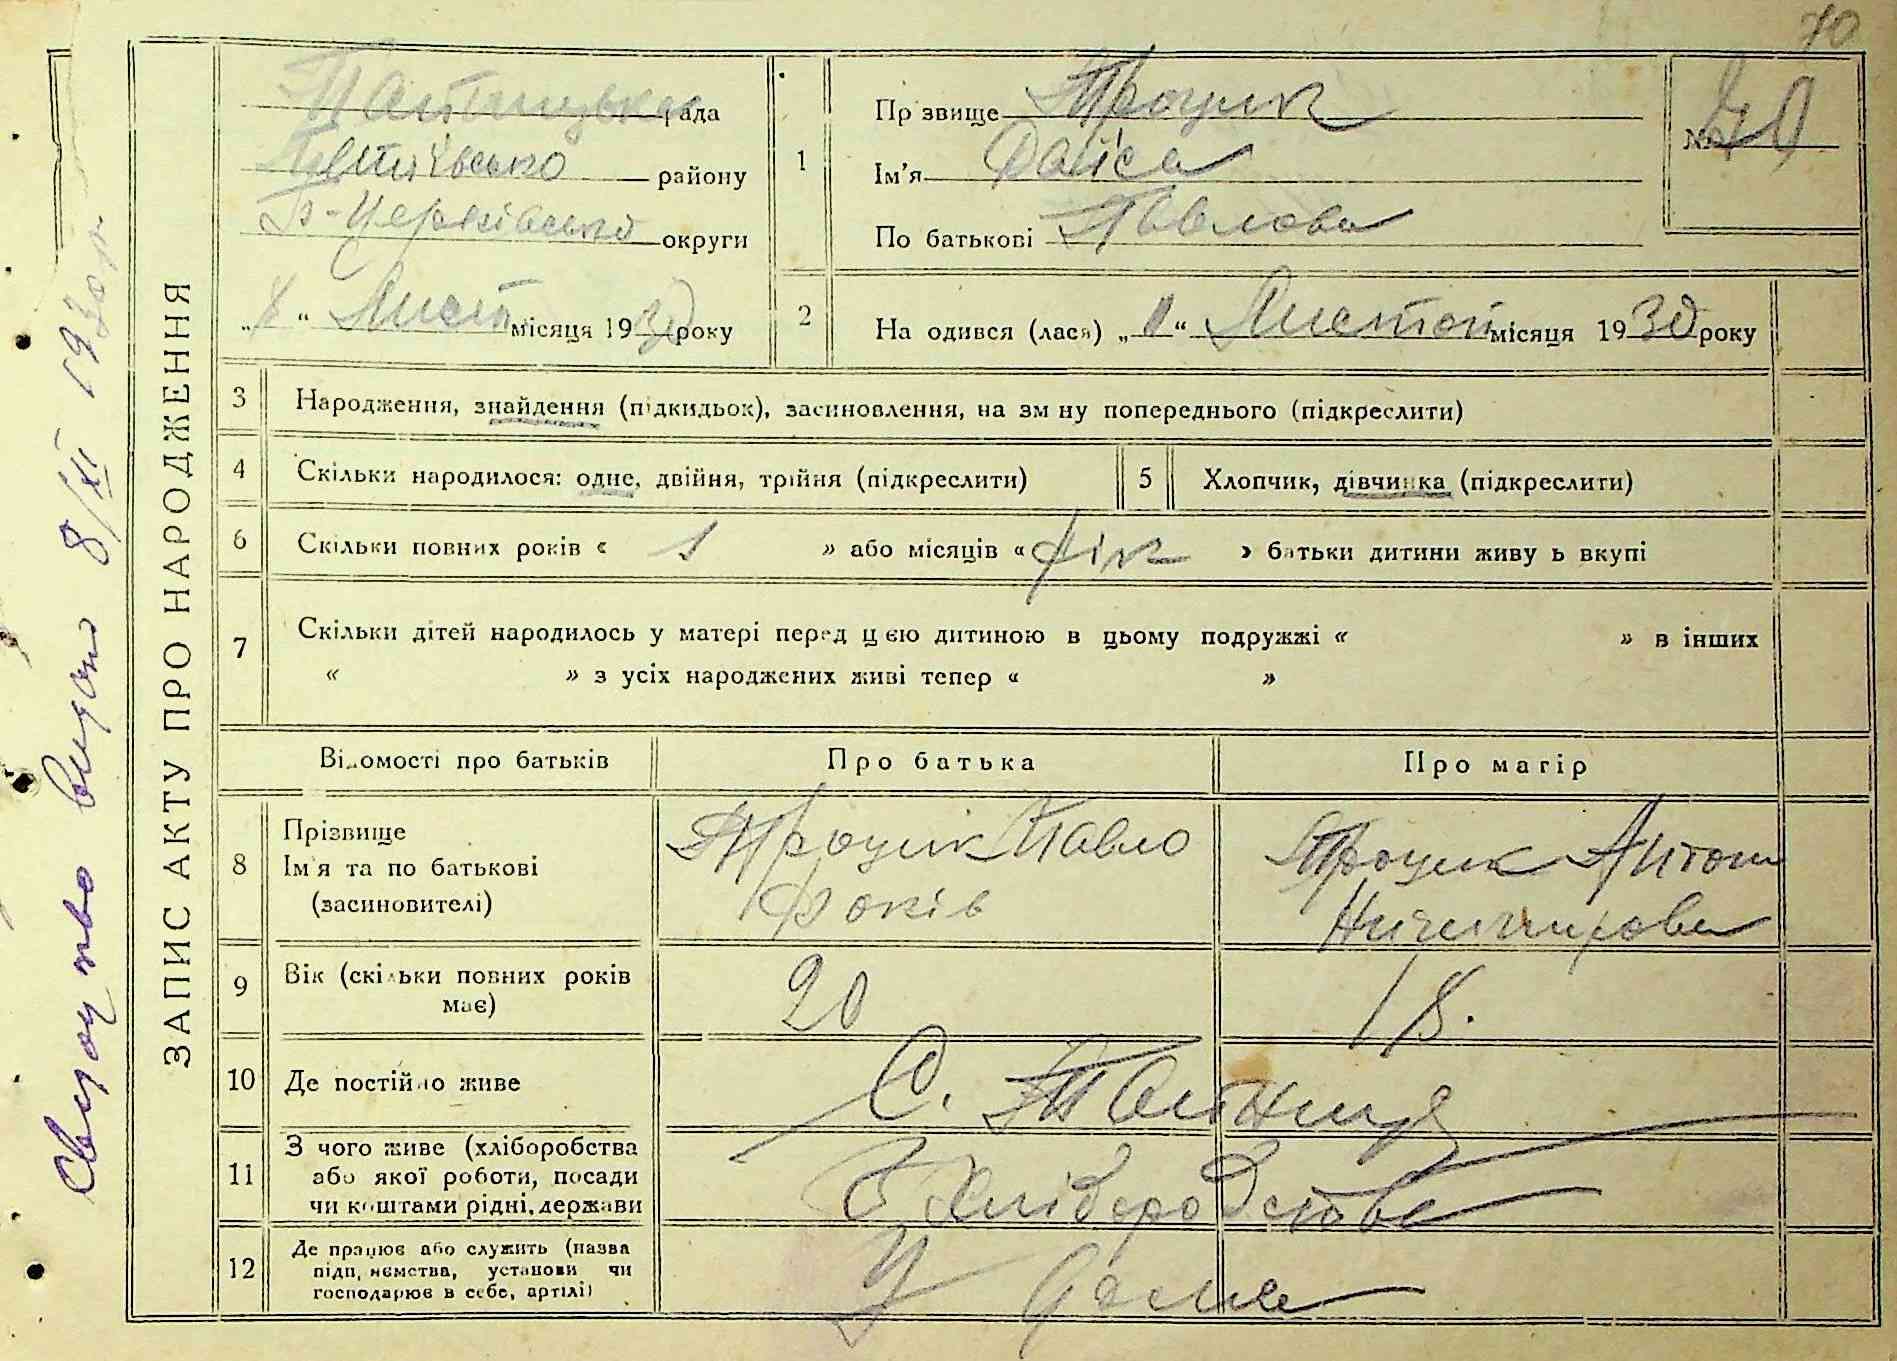 70
Свідоцтво видано 8/XII 1930 р
ЗАПИС АКТУ ПРО НАРОДЖЕННЯ
рада
району
Б-Церківсько округи
„8“ Лист місяця 1930 року
1
Пр звище Троцик
Ім'я Раїса
По батькові Павлова
№ 70
2
На одився (лася) „ “ Листоп місяця 1930 року
3
Народження, знайдення (підкидьок), засиновлення, на зм ну попереднього (підкреслити)
4
Скільки народилося: одне, двійня, трійня (підкреслити)
5
Хлопчик, дівчинка (підкреслити)
6
Скільки повних років « 1 » або місяців « рік » батьки дитини живу ь вкупі
7
Скільки дітей народилось у матері перед цею дитиною в цьому подружжі « » в інших
« » з усіх народжених живі тепер « »
Відомості про батьків
Про батька
Про матір
8
Прізвище
Ім'я та по батькові
(засиновителі)
Троцик Павло
Фоків
Троцик Антон
9
Вік (скільки повних років
має)
20
18.
10
Де постійно живе
С.
11
З чого живе (хліборобства
або якої роботи, посади
чи коштами рідні, держави
З Хліборобства
12
Де працює або служить (назва
підп, иємства, установи чи
господарює в себе, артілі)
У